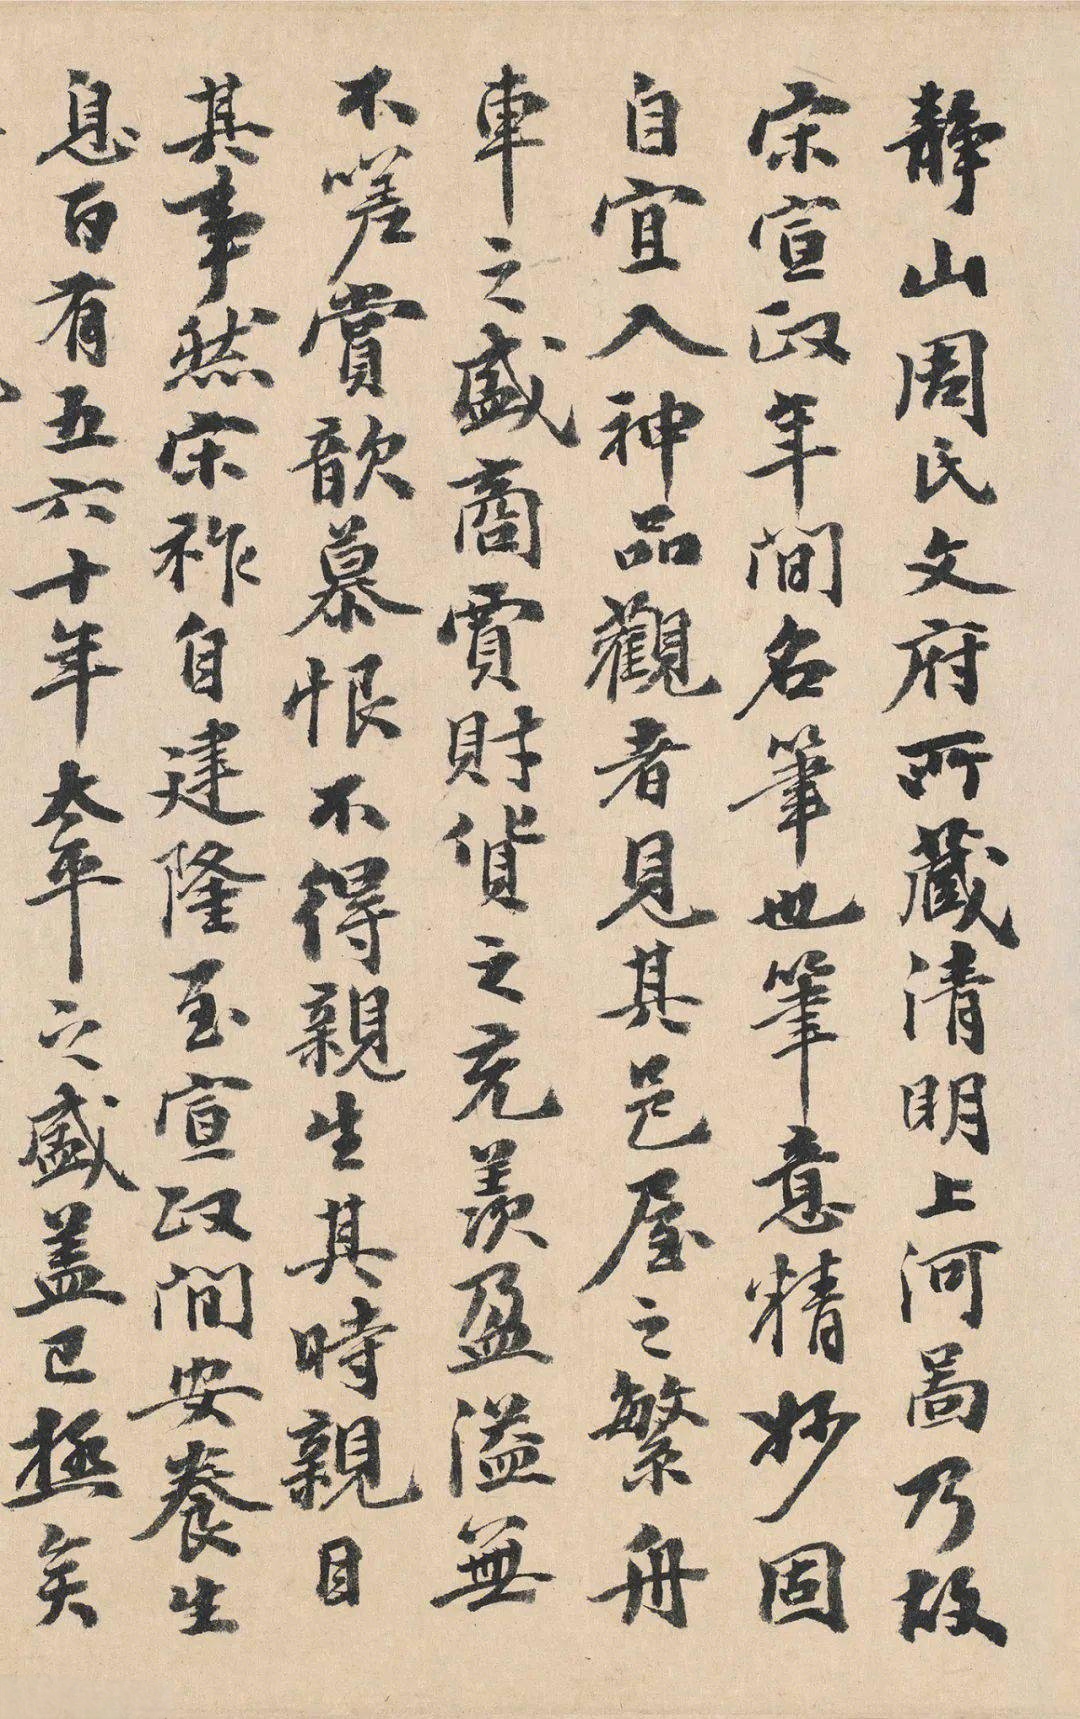 靜山周氏文府所藏清明上河啚乃故
宋宣政年間名筆也筆意精妙固
自宜入神品觀者見其邑屋之繁舟
車之盛商賈財貨之充羨盈溢無
不嗟賞歆慕恨不得親生其時親目
其事然宋祚自建隆至宣政間安養生
息百有五六十年太平之盛盖已極矣